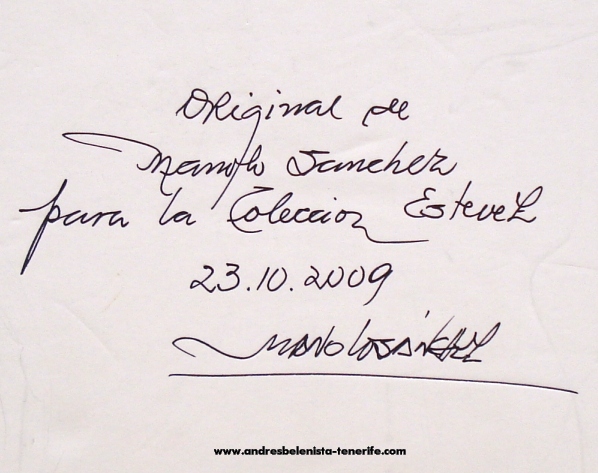 Original de
Manolo Sanchez
para la Coleccion Estevez
23.10.2009
Manolo Sánchez
www.andresbelenista-tenerife.com